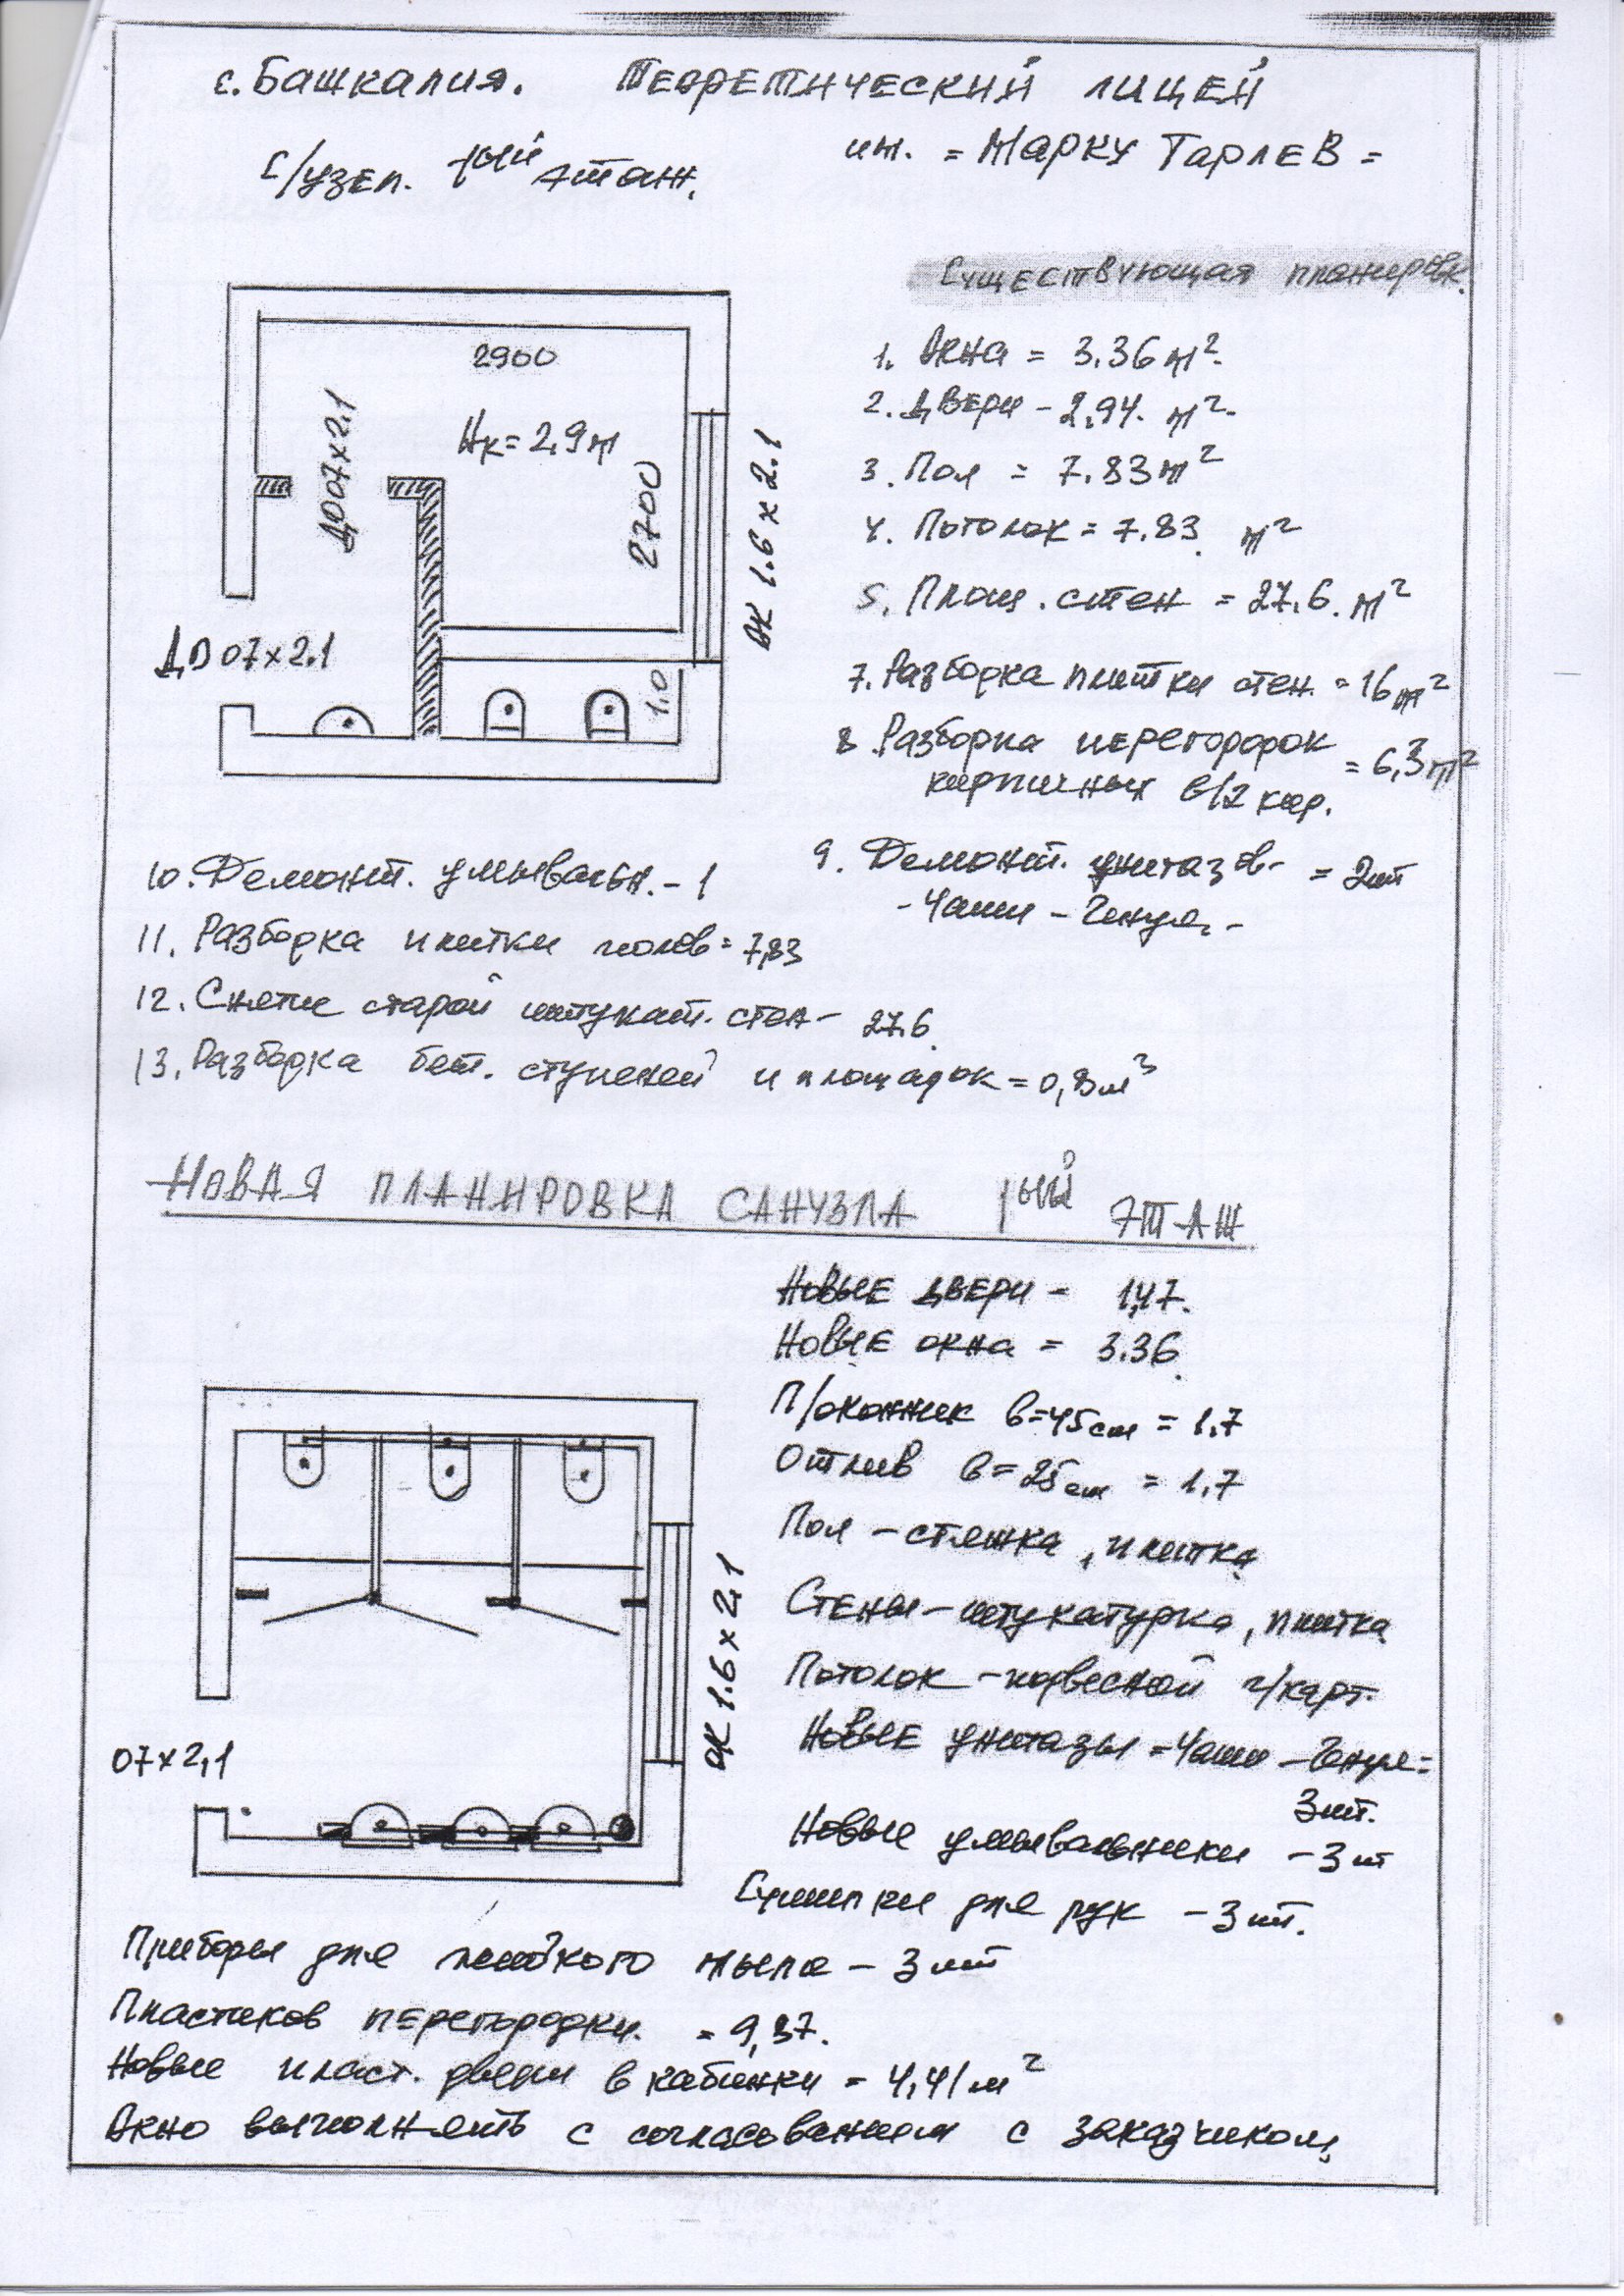 с. Башкалия. Теоретический лицей
им. = Марку Тарлев =
С/узел. 1ый этаж.
Существующая планировк.
2900
Нк = 2,9 м
2700
Д007х2.1
ОК 1.6 х 2.1
ДО 07х2.1
1.0
1. Окна = 3.36 м²
2. Двери - 2,94. м²
3. Пол = 7.83 м²
4. Потолок = 7.83 м²
5. Площ. стен = 27.6. м²
7. Разборка плитки стен. = 16 м²
8. Разборка перегородок
кирпичных в 1/2 кир. = 6,3 м²
9. Демонт. унитазов-
- Чаши - Генуя, - = 2шт
10. Демонт. умывальн. - 1
11. Разборка плитки полов = 7,83
12. Снятие старой штукат. стен - 27.6
13. Разборка бет. ступеней и площадок = 0,8 м³
Новая планировка санузла 1ый этаж
Новые двери - 1,47.
Новые окна = 3.36
П/оконник в=45см = 1.7
Отлив в=25см = 1.7
Пол - стяжка, плитка
Стены - штукатурка, плитка
Потолок - подвесной г/карт.
Новые унитазы = Чаши - Генуя =
3шт.
Новые умывальники - 3 шт
Сушилки для рук - 3 шт.
ОК 1.6 х 2,1
07х2,1
Приборы для жидкого мыла - 3 шт
Пластиков перегородки. = 9,37.
Новые пласт. двери в кабинки = 4,41 м²
Окно выполнять с согласованием с заказчиком,